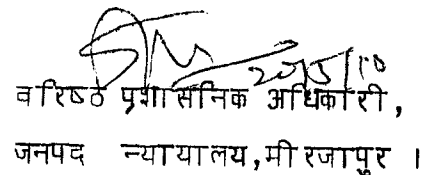 वरिष्ठ प्रशासनिक अधिकारी,
जनपद न्यायालय,मीरजापुर ।